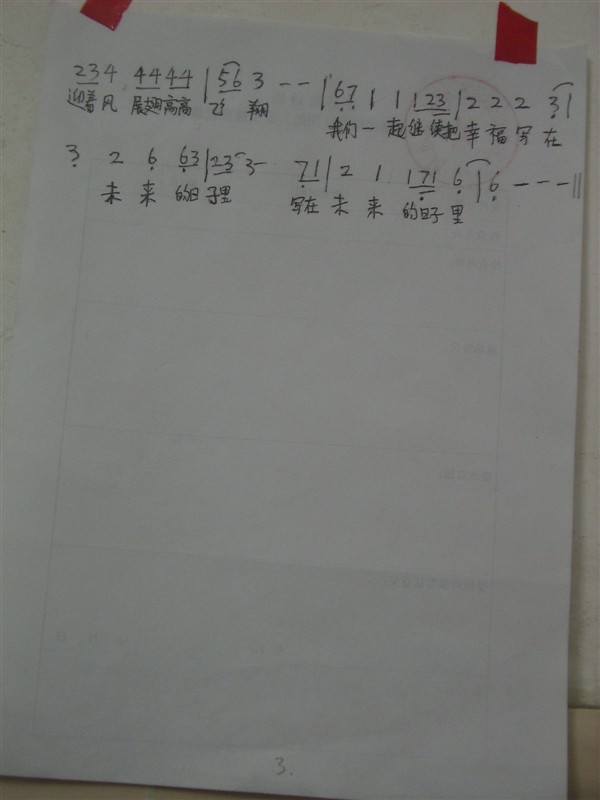 234 44 44 | 56 3 - - | 67 1 1 1 23 | 2 2 2 3 |
迎着风 展翅高高 飞 翔 我们一起继续把幸福写在
3 2 6 63 | 23 3 - 71 | 2 1 171 6 | 6 - - - ||
未来的日子里 写在未来的日子里
3.